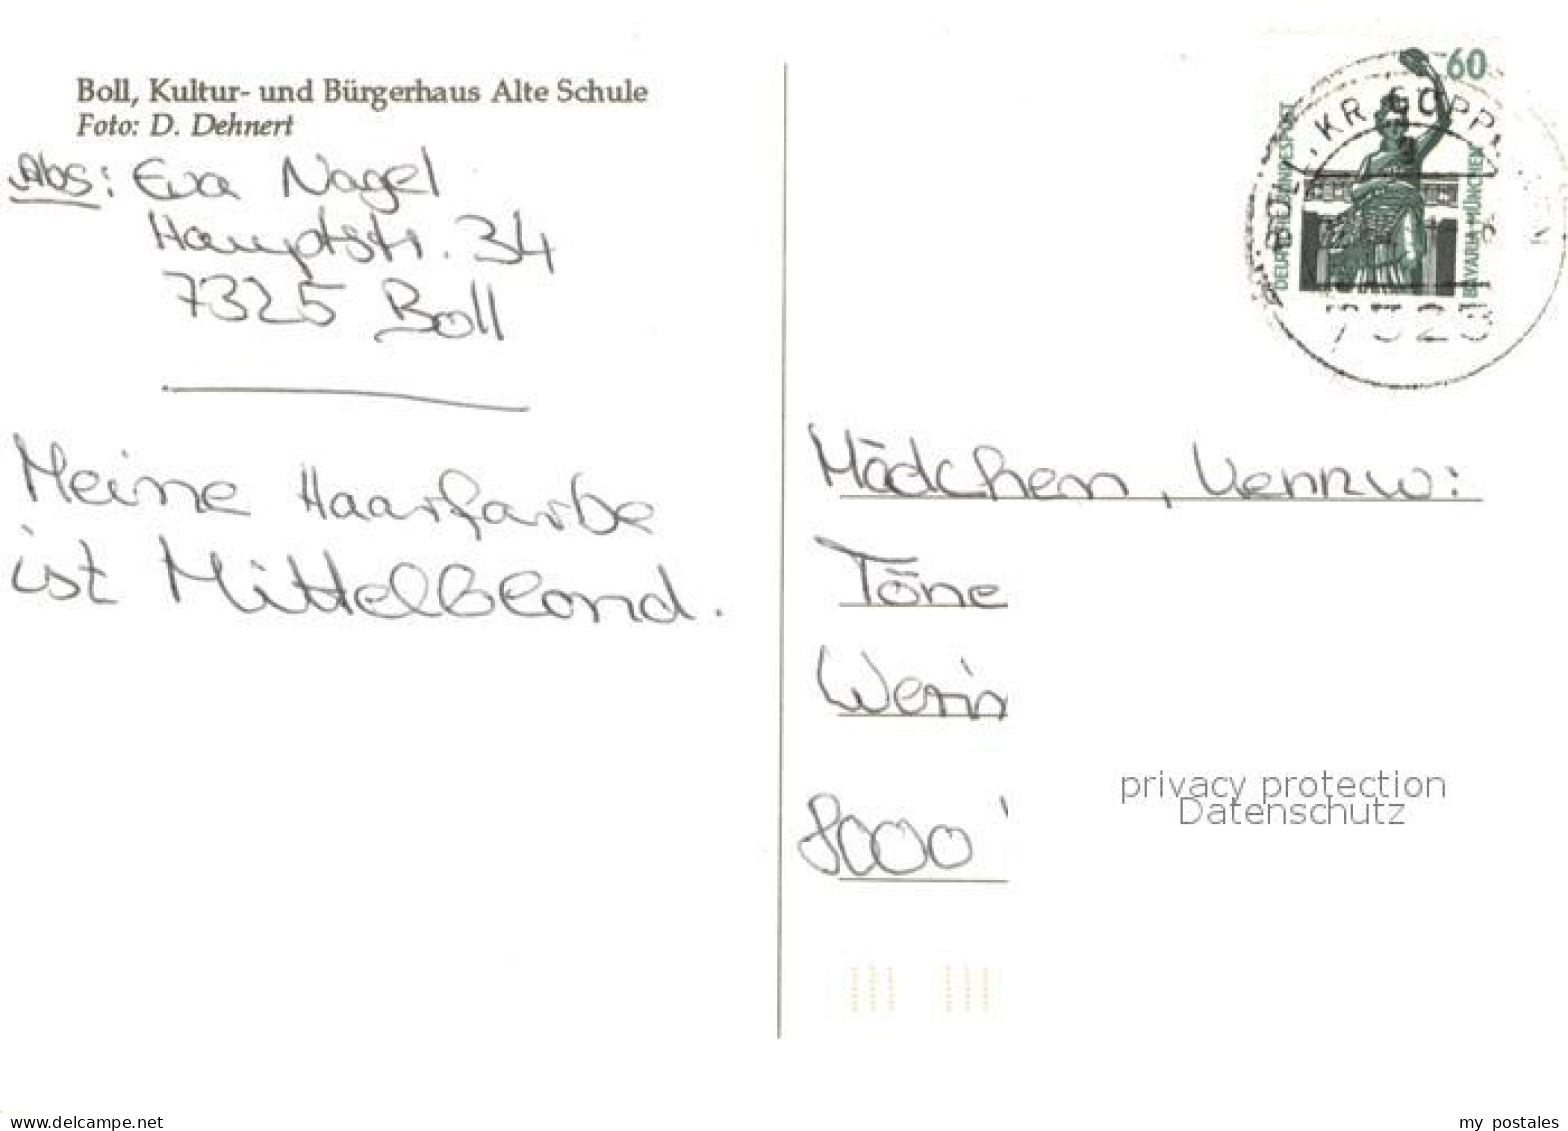 Boll, Kultur- und Bürgerhaus Alte Schule
Foto: D. Dehnert
Abs: Eva Nagel
Hauptstr. 34
7325 Boll
Meine Haarfarbe
ist Mittelblond.
60
DEUTSCHE BUNDESPOST
BAVARIA MÜNCHEN
KR GÖPP
7325
Mädchen, Kennw:
Töne
8000
privacy protection
Datenschutz
www.delcampe.net
my_postales